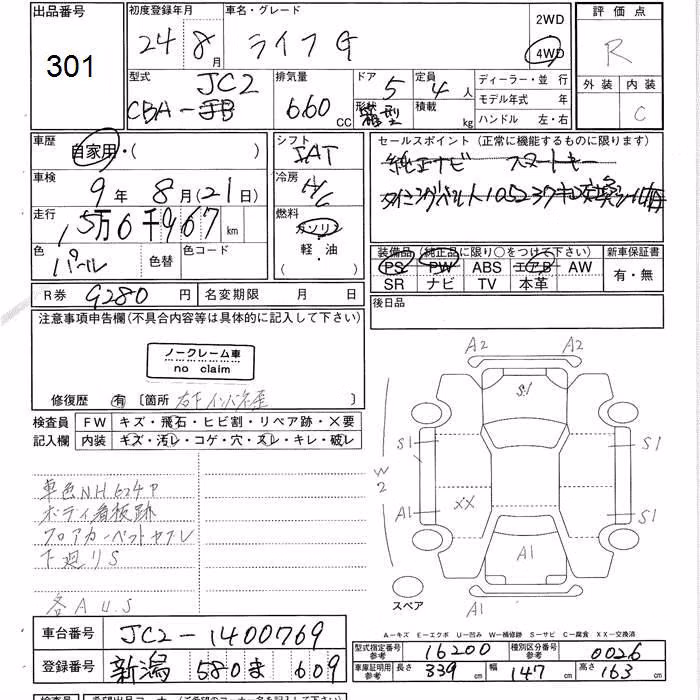 出品番号 初度登録年月 車名・グレード 2WD 評価点
301 24年8月 ライフG 4WD R
型式 排気量 ドア 定員 ディーラー・並行 外装 内装
CBA-JB JC2 660CC 5 4人 モデル年式 年 C
形状 積載 kg ハンドル 左・右
箱型
車歴 シフト セールスポイント (正常に機能するものに限ります)
自家用・( ) 純正ナビ スマートキー
車検 冷房
9年8月(21日) A/C
走行 燃料
15万6千967km ガソリン
軽・油
色 色替 色コード
パール
装備品 (純正品に限り○をつけて下さい) 新車保証書
PS PW ABS エアB AW 有・無
SR ナビ TV 本革
R券 9280円 名変期限 月 日 後日品
注意事項申告欄(不具合内容等は具体的に記入して下さい)
ノークレーム車
no claim
修復歴 有 〔箇所 〕
検査員 FW キズ・飛石・ヒビ割・リペア跡・×要
記入欄 内装 キズ・汚レ・コゲ・穴・スレ・キレ・破レ
車色N.H.624P
ボディ看板跡
フロアカーペットヤブレ
下廻りS
各A U.S
A2 A2
S1
S1 S1
W2
XX
A1 S1
A1
A1
スペア
A-キズ E-エクボ U-凹み W-補修跡 S-サビ C-腐食 XX-交換済
車台番号 JC2-1400769
登録番号 新潟 580 ま 609
型式指定番号 参考 16200 種別区分番号 参考 0026
車庫証明用 参考 長さ 339cm 幅 147cm 高さ 163cm